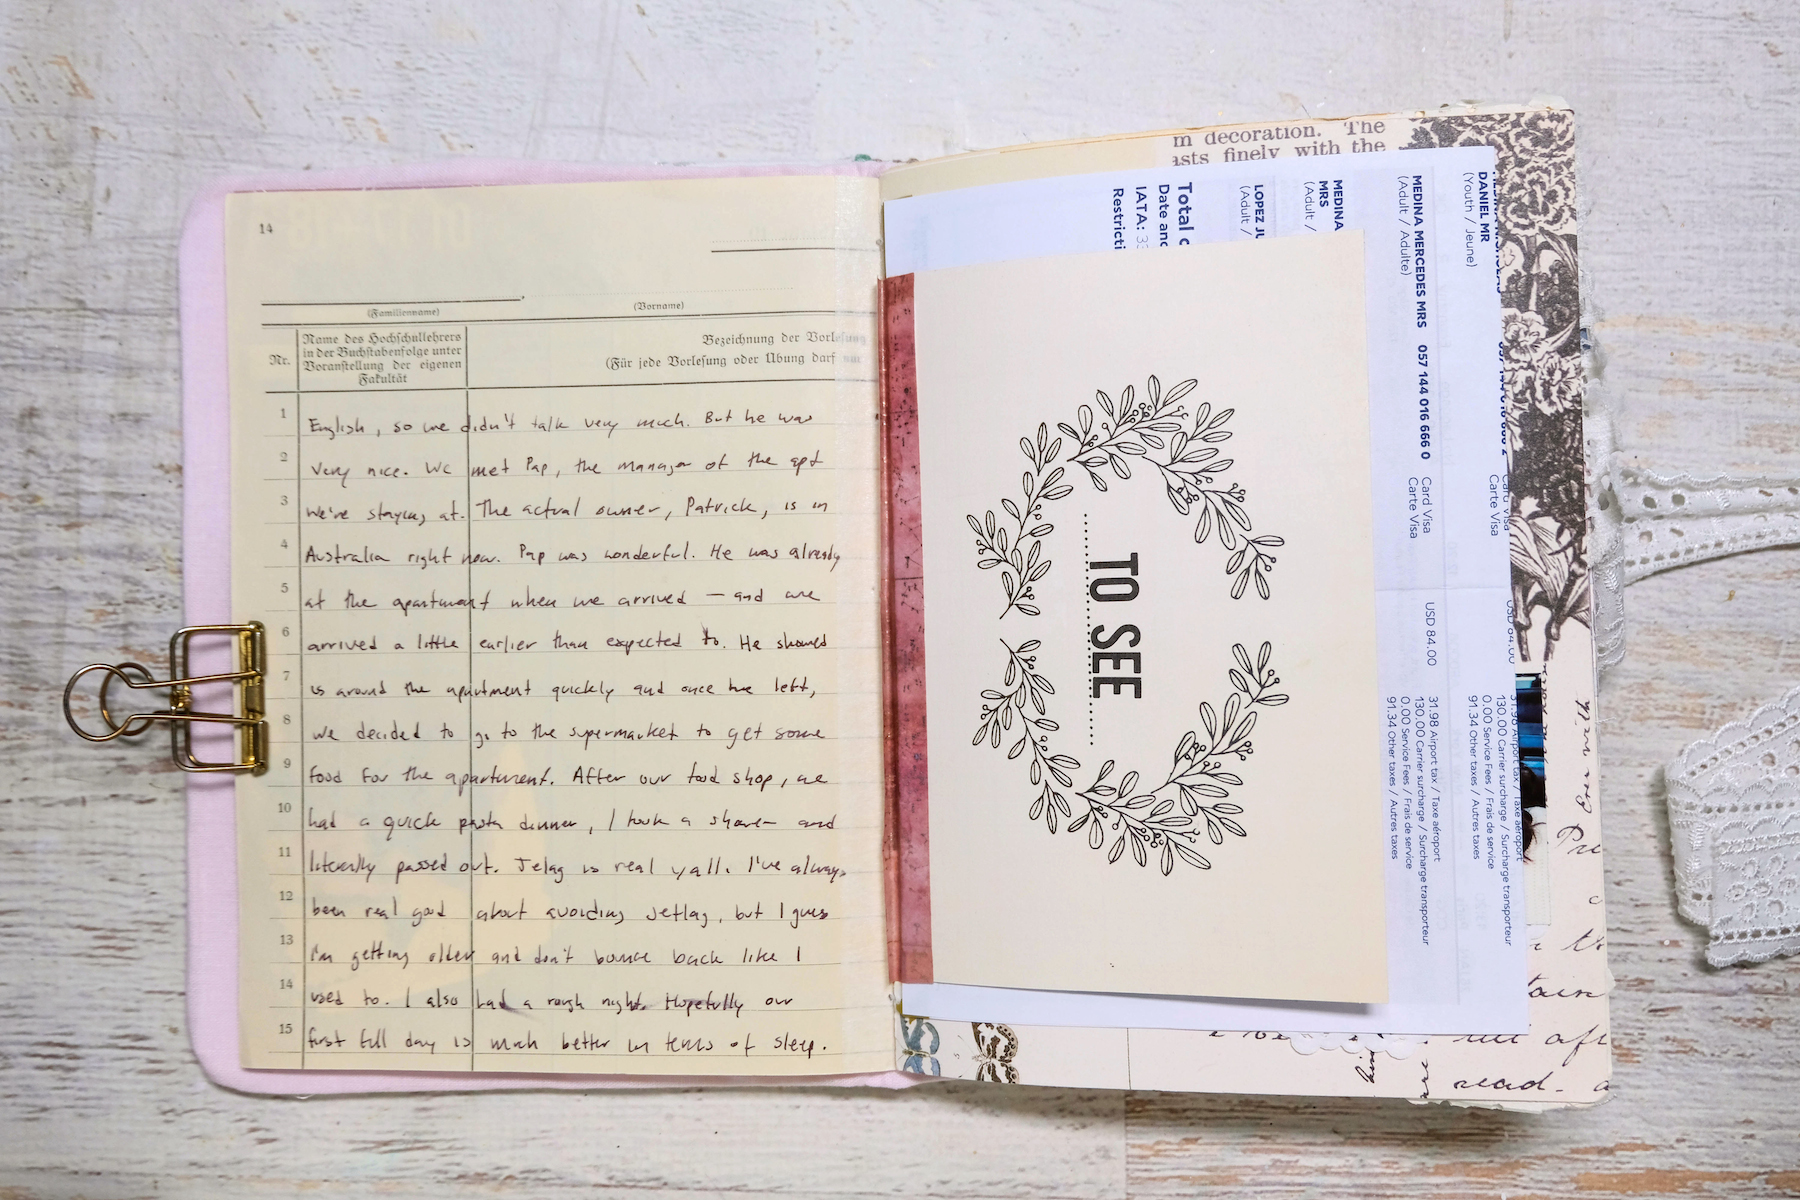 14
(Familienname)
(Vorname)
Nr.
Name des Hochschullehrers
in der Buchstabenfolge unter
Voranstellung der eigenen
Fakultät
Bezeichnung der Vorlesung
(Für jede Vorlesung oder Übung darf nur
1 English, so we didn't talk very much. But he was
2 very nice. We met Pap, the manager of the apt
3 we're staying at. The actual owner, Patrick, is in
4 Australia right now. Pap was wonderful. He was already
5 at the apartment when we arrived — and we
6 arrived a little earlier than expected to. He showed
7 us around the apartment quickly and once he left,
8 we decided to go to the supermarket to get some
9 food for the apartment. After our food shop, we
10 had a quick pasta dinner, I took a shower and
11 literally passed out. Jelag is real yall. I've always
12 been real good about avoiding jetlag, but I guess
13 I'm getting older and don't bounce back like I
14 used to. I also had a rough night. Hopefully our
15 first full day is much better in terms of sleep.
m decoration. The
asts finely with the
TO SEE
DANIEL MR
(Youth / Jeune)
Card Visa
Carte Visa
USD 84.00
31.98 Airport tax / Taxe aéroport
130.00 Carrier surcharge / Surcharge transporteur
0.00 Service Fees / Frais de service
91.34 Other taxes / Autres taxes
MEDINA MERCEDES MRS 057 144 016 666 0
(Adult / Adulte)
Card Visa
Carte Visa
USD 84.00
31.98 Airport tax / Taxe aéroport
130.00 Carrier surcharge / Surcharge transporteur
0.00 Service Fees / Frais de service
91.34 Other taxes / Autres taxes
MEDINA
MRS
(Adult /
LOPEZ JU
(Adult /
Total c
Date and
IATA: 3
Restricti
read.